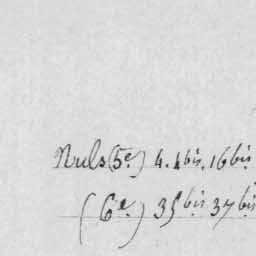 Nuls (5e) 4. 4bis. 16bis
(6e) 35bis 37bis